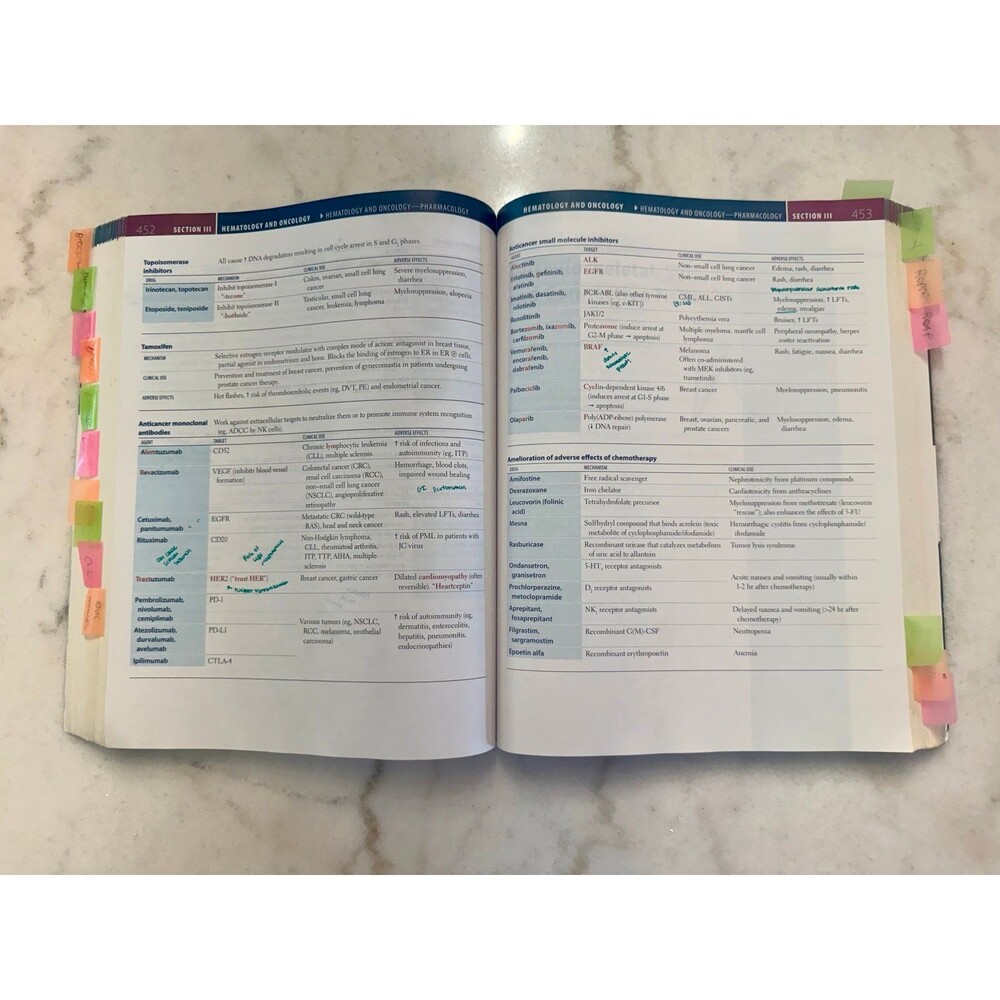 452 SECTION III HEMATOLOGY AND ONCOLOGY ▸ HEMATOLOGY AND ONCOLOGY—PHARMACOLOGY
Topoisomerase inhibitors All cause ↑ DNA degradation resulting in cell cycle arrest in S and G₂ phases.
DRUG MECHANISM CLINICAL USE ADVERSE EFFECTS
Irinotecan, topotecan Inhibit topoisomerase I "-tecone" Colon, ovarian, small cell lung cancer Severe myelosuppression, diarrhea
Etoposide, teniposide Inhibit topoisomerase II "-bothside" Testicular, small cell lung cancer, leukemia, lymphoma Myelosuppression, alopecia
Tamoxifen
MECHANISM Selective estrogen receptor modulator with complex mode of action: antagonist in breast tissue,
partial agonist in endometrium and bone. Blocks the binding of estrogen to ER in ER ⊕ cells.
CLINICAL USE Prevention and treatment of breast cancer, prevention of gynecomastia in patients undergoing
prostate cancer therapy.
ADVERSE EFFECTS Hot flashes, ↑ risk of thromboembolic events (eg, DVT, PE) and endometrial cancer.
Anticancer monoclonal antibodies Work against extracellular targets to neutralize them or to promote immune system recognition
(eg, ADCC by NK cells).
AGENT TARGET CLINICAL USE ADVERSE EFFECTS
Alemtuzumab CD52 Chronic lymphocytic leukemia (CLL), multiple sclerosis ↑ risk of infections and autoimmunity (eg, ITP)
Bevacizumab VEGF (inhibits blood vessel formation) Colorectal cancer (CRC), renal cell carcinoma (RCC), non–small cell lung cancer (NSCLC), angioproliferative retinopathy Hemorrhage, blood clots, impaired wound healing
GI perforation
Cetuximab, panitumumab EGFR Metastatic CRC (wild-type RAS), head and neck cancer Rash, elevated LFTs, diarrhea
Rituximab CD20 Non-Hodgkin lymphoma, CLL, rheumatoid arthritis, ITP, TTP, AIHA, multiple sclerosis ↑ risk of PML in patients with JC virus
Trastuzumab HER2 ("trust HER") Breast cancer, gastric cancer Dilated cardiomyopathy (often reversible). "Heartceptin"
Pembrolizumab, nivolumab, cemiplimab PD-1
Atezolizumab, durvalumab, avelumab PD-L1 Various tumors (eg, NSCLC, RCC, melanoma, urothelial carcinoma) ↑ risk of autoimmunity (eg, dermatitis, enterocolitis, hepatitis, pneumonitis, endocrinopathies)
Ipilimumab CTLA-4
HEMATOLOGY AND ONCOLOGY ▸ HEMATOLOGY AND ONCOLOGY—PHARMACOLOGY SECTION III 453
Anticancer small molecule inhibitors
AGENT TARGET CLINICAL USE ADVERSE EFFECTS
Alectinib ALK Non–small cell lung cancer Edema, rash, diarrhea
Erlotinib, gefitinib, afatinib EGFR Non–small cell lung cancer Rash, diarrhea
Imatinib, dasatinib, nilotinib BCR-ABL (also other tyrosine kinases [eg, c-KIT]) CML, ALL, GISTs Myelosuppression, ↑ LFTs, edema, myalgias
Ruxolitinib JAK1/2 Polycythemia vera Bruises, ↑ LFTs
Bortezomib, ixazomib, carfilzomib Proteasome (induce arrest at G2-M phase → apoptosis) Multiple myeloma, mantle cell lymphoma Peripheral neuropathy, herpes zoster reactivation
Vemurafenib, encorafenib, dabrafenib BRAF Melanoma Often co-administered with MEK inhibitors (eg, trametinib) Rash, fatigue, nausea, diarrhea
Palbociclib Cyclin-dependent kinase 4/6 (induces arrest at G1-S phase → apoptosis) Breast cancer Myelosuppression, pneumonitis
Olaparib Poly(ADP-ribose) polymerase (↓ DNA repair) Breast, ovarian, pancreatic, and prostate cancers Myelosuppression, edema, diarrhea
Amelioration of adverse effects of chemotherapy
DRUG MECHANISM CLINICAL USE
Amifostine Free radical scavenger Nephrotoxicity from platinum compounds
Dexrazoxane Iron chelator Cardiotoxicity from anthracyclines
Leucovorin (folinic acid) Tetrahydrofolate precursor Myelosuppression from methotrexate (leucovorin "rescue"); also enhances the effects of 5-FU
Mesna Sulfhydryl compound that binds acrolein (toxic metabolite of cyclophosphamide/ifosfamide) Hemorrhagic cystitis from cyclophosphamide/ifosfamide
Rasburicase Recombinant uricase that catalyzes metabolism of uric acid to allantoin Tumor lysis syndrome
Ondansetron, granisetron 5-HT₃ receptor antagonists
Prochlorperazine, metoclopramide D₂ receptor antagonists Acute nausea and vomiting (usually within 1-2 hr after chemotherapy)
Aprepitant, fosaprepitant NK₁ receptor antagonists Delayed nausea and vomiting (>24 hr after chemotherapy)
Filgrastim, sargramostim Recombinant G(M)-CSF Neutropenia
Epoetin alfa Recombinant erythropoietin Anemia